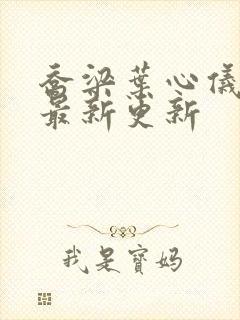 乔梁葉心儀
最新更新
我是寶媽